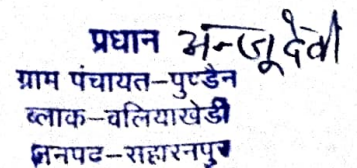 प्रधान अन्जू देवी
ग्राम पंचायत–पुण्डैन
ब्लाक–बलियाखेडी
जनपद–सहारनपुर